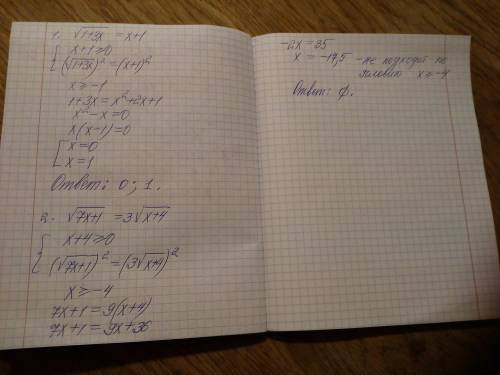 1. √(1+3x) = x+1
{ x+1≥0
(√(1+3x))² = (x+1)²
x≥-1
1+3x = x²+2x+1
x²-x=0
x(x-1)=0
[ x=0
x=1
Ответ: 0; 1.
2. √(7x+1) = 3√(x+4)
{ x+4≥0
(√(7x+1))² = (3√(x+4))²
x≥-4
7x+1 = 9(x+4)
7x+1 = 9x+36
-2x=35
x = -17,5 - не подходит по
условию x≥-4
Ответ: ∅.